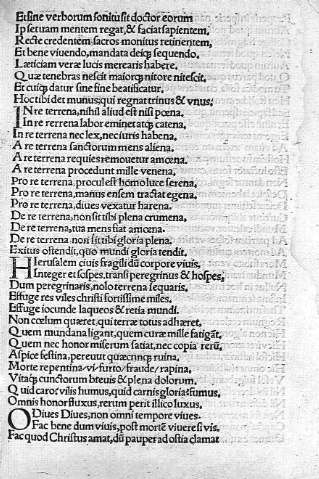 Et sine verborum sonitu sit doctor eorum
Ipse tuam mentem regat, & faciat sapientem,
Recte credentem sacros monitus retinentem,
Et bene viuendo, mandata deiq; sequendo.
Lætitiam veræ lucis mereatis habere.
Quæ tenebras nescit maiorq; nitore nitescit,
Et cuiq; datur sine fine beatificatur.
Hoc tibi det munus, qui regnat trinus & vnus:
IN re terrena, nihil aliud est nisi pœna,
In re terrena labor eminet atq; catena,
In re terrena nec lex, nec iuris habena,
A re terrena sanctorum mens aliena.
A re terrena requies remouetur amœna.
A re terrena procedunt mille venena,
Pro re terrena, procul est homo luce serena,
Pro re terrena, manus ensem tractat egena,
Pro re terrena, diues vexatur harena.
De re terrena, non sit tibi plena crumena,
De re terrena, tua mens fiat anicena.
De re terrena non sit tibi gloria plena.
Exitus ostendit, quo mundi gloria tendit.
HIerusalem ciuis fragili dũ corpore viuis,
Integer et sospes, transi peregrinus & hospes,
Dum peregrinaris, nolo terrena sequaris,
Effuge res viles christi fortissime miles.
Effuge iocunde laqueos & retia mundi.
Non cœlum quæret, qui terræ totus adhæret.
Quem mundana ligant, quem curæ mille fatigãt,
Quem nec honor miserum satiat, nec copia rerũ,
Aspice festina, pereunt quæcunq; ruina,
Morte repentina vi/furto/fraude/rapina,
Vitaq; cunctorum breuis & plena dolorum.
Quid caro? vilis humus, quid carnis gloria? fumus.
Omnis honor fluxus, rerum perit illico luxus.
O Diues Diues, non omni tempore viues.
Fac bene dum viuis, post mortẽ viuere si vis.
Fac quod Christus amat, dũ pauper ad ostia clamat